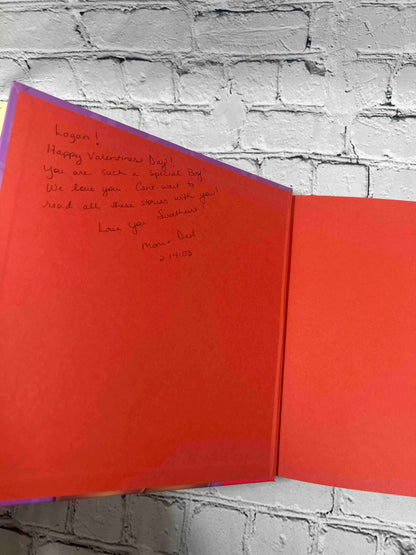 Logan!
Happy Valentines Day!!
You are such a Special Boy!
We love you. Cant wait to
read all these stories with you!
Love You Sweetheart!
Mom & Dad
2.14.03